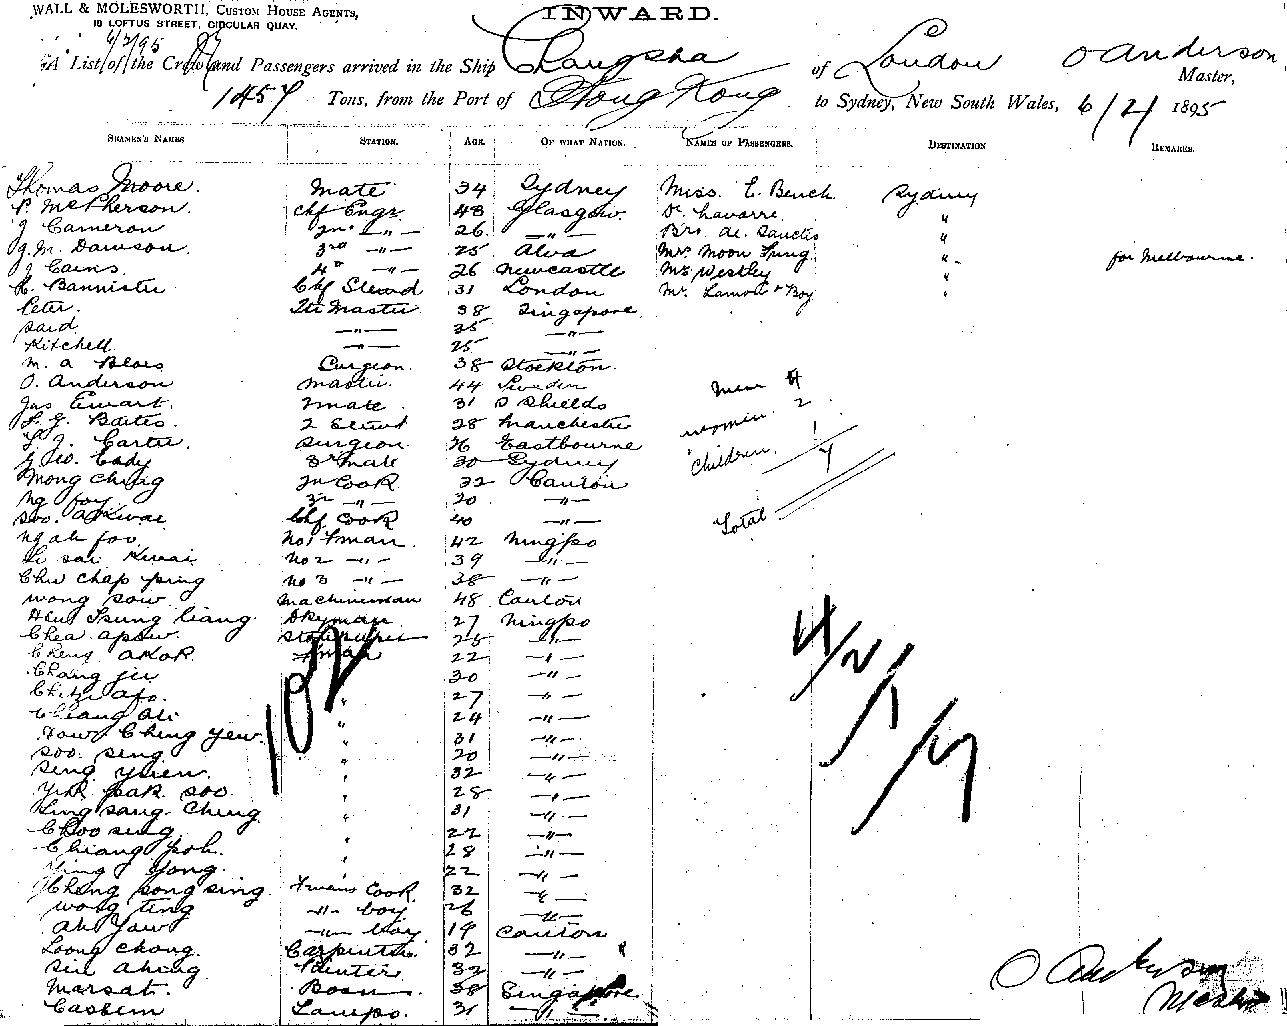 WALL & MOLESWORTH, CUSTOM HOUSE AGENTS,
10 LOFTUS STREET, CIRCULAR QUAY.
INWARD.
A List of the Crew and Passengers arrived in the Ship Changsha of London O Anderson Master,
1457 Tons, from the Port of Hong Kong to Sydney, New South Wales, 6/2/ 1895
SEAMEN'S NAMES STATION. AGE. OF WHAT NATION. NAMES OF PASSENGERS. DESTINATION REMARKS.
Thomas Moore. Mate 34 Sydney Miss. E. Bench Sydney
P. McPherson. Chf Engr 48 Glasgow Dr Lavarre "
J Cameron 2nd —"— 26 —"— Bro. de. Sanctis "
J. M. Dawson. 3rd —"— 25 Alva Mr. Moon "
J Cains. 4th —"— 26 Newcastle Mr Westley " for Melbourne.
Bannister Chf Steward 31 London Mr. Lamont & Boy "
Peter. Qr Master 38 Singapore
Said —"— 35 —"—
Kitchell —"— 25 —"—
M. A Surgeon. 38 Stockton.
O. Anderson Master. 44 Sweden Men 4
Jas Ewart. 2 Mate 31 S Shields women. 2
Bates 2 Steward 28 Manchester
J. Carter. Surgeon. 26 Eastbourne Children. 1
J. W. Eady 3rd Mate 30 Sydney 7
Mong Ching 2n Cook 32 Canton
Ng foy 3r —"— 30 —"—
Soo. Akwai Chf Cook 40 —"— Total
Ngah foo No 1 Fman 42 Ningpo
Li sai Kwai No 2 —"— 39 —"—
Chu Chap Ying No 3 —"— 38 —"—
Wong Sow Machineman 48 Canton
Tsung liang Dkyman 27 Ningpo 4/2/1/7
Chea apow. Storekeeper 25 —"—
Cheng Akok Fman 22 —"—
Chang jiu " 30 —"—
" 27 —"—
Chiang Ali " 24 —"—
Ching Yew " 31 —"—
Soo. Seng " 20 —"—
Seng Yuen. " 32 —"—
Yuk pak Soo " 28 —"—
Ling sang. Ching " 31 —"—
Choo sing " 22 —"—
Chiang poh. " 28 —"—
Ying Yong. " 22 —"—
Cheng song sing Fmans Cook 32 —"—
Wong Ting —"— boy 26 —"—
Ah Yaw —"— boy 19 Canton
Loong Chong. Carpenter 32 —"—
Sin Ahing Painter 32 —"—
Marsat. Bosn 38 Singapore
Cassem Lampo. 31 —"—
102
O Anderson
Master